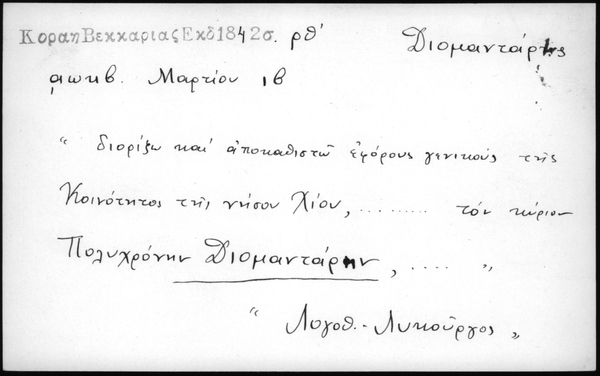 ΚοραηΒεκκαριαςΕκδ1842σ. ρθ' Διομαντάρης
͵αωκβ. Μαρτίου ιβ
“ διορίζω καὶ ἀποκαθιστῶ ἐφόρους γενικοὺς τῆς
Κοινότητος τῆς νήσου Χίου, ......... τὸν κύριον
Πολυχρόνην Διομαντάρην, ..... „
“ Λογοθ. Λυκοῦργος „